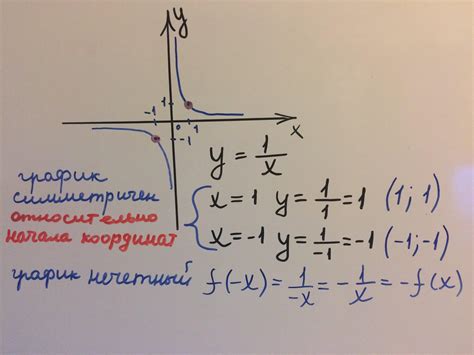 y
-1 1 0 1 x
-1
y = 1/x
график
симметричен x = 1 y = 1/1 = 1 (1; 1)
относительно
начала координат x = -1 y = 1/-1 = -1 (-1; -1)
график нечетный f(-x) = 1/-x = -1/x = -f(x)